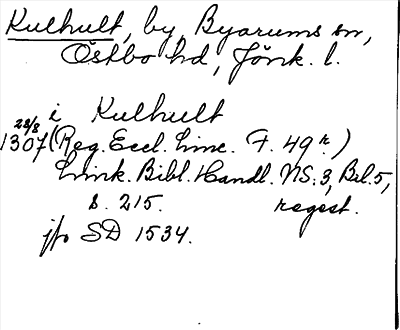 Kulhult, by, Byarums sn,
Östbo hd, Jönk. l.
i Kulhult
28/8
1307 (Reg. Eccl. Linc. F. 49r)
Link. Bibl. Handl. NS. 3, Bil. 5,
s. 215. regest.
jfr SD 1534.